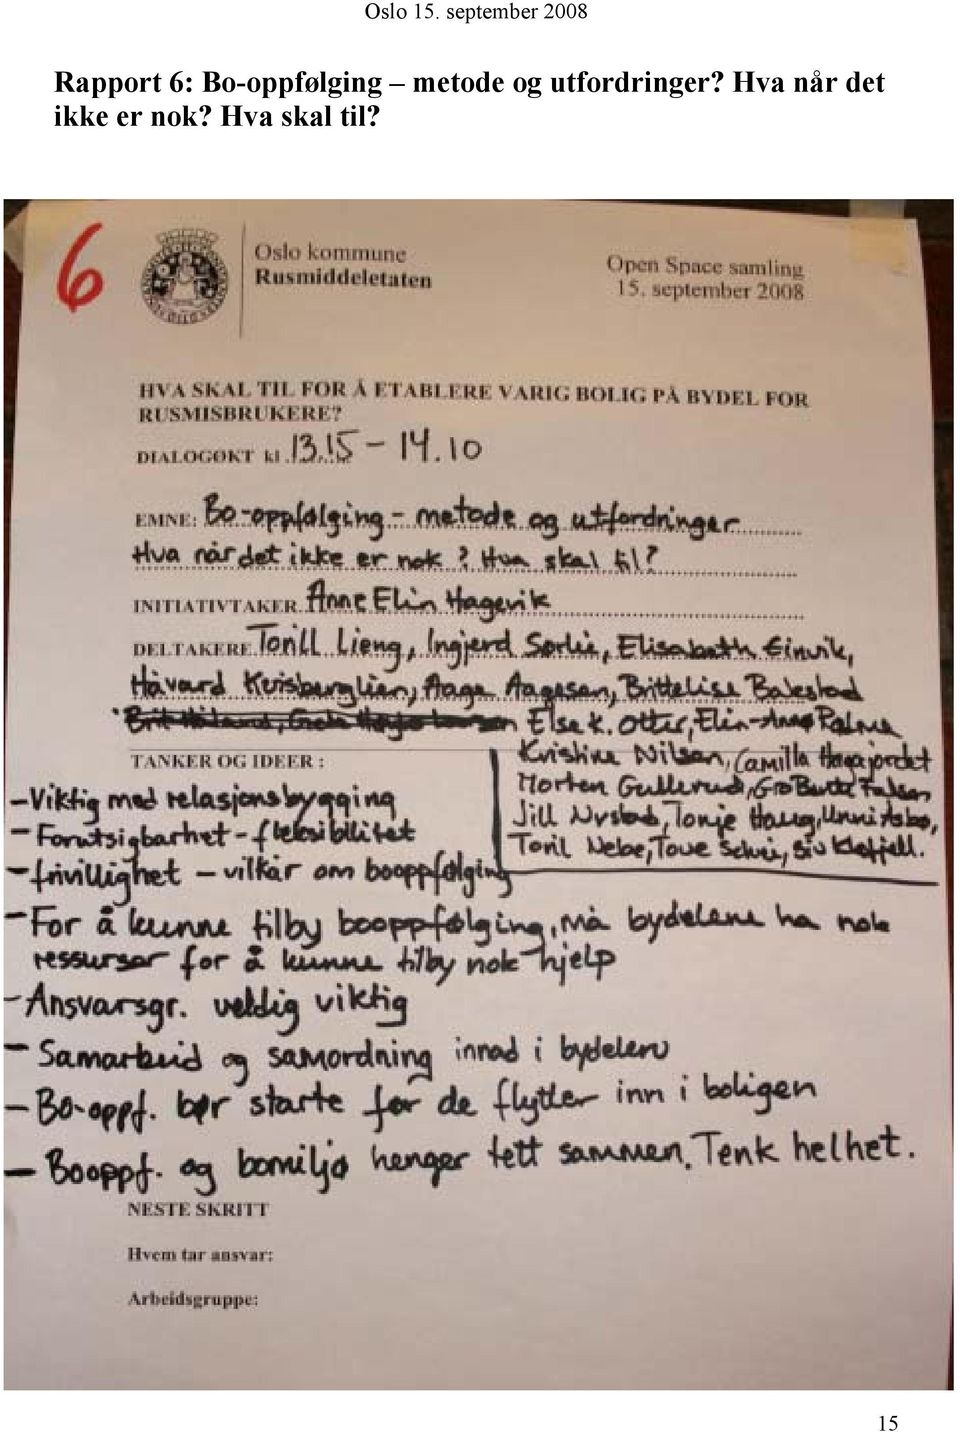 Oslo 15. september 2008
Rapport 6: Bo-oppfølging – metode og utfordringer? Hva når det
ikke er nok? Hva skal til?
6
Oslo kommune
Rusmiddeletaten
Open Space samling
15. september 2008
HVA SKAL TIL FOR Å ETABLERE VARIG BOLIG PÅ BYDEL FOR
RUSMISBRUKERE?
DIALOGØKT kl. 13.15 – 14.10
EMNE: Bo-oppfølging - metode og utfordringer
Hva når det ikke er nok? Hva skal til?
INITIATIVTAKER Anne Elin Hagevik
DELTAKERE Torill Lieng, Ingjerd Sørlie, Elisabeth Einvik,
Håvard Kvisberglien, Aage Aagesen, Brittelise Bakstad
Else K. Otter, Elin-Anne Palme
Kristine Nilsen, Camilla Hagajordet
Morten Gullerud, Gro Bente
Jill Nystad, Tonje Haug, Unni
Toril Nebe, Tove Siv Klefjell.
TANKER OG IDEER :
- Viktig med relasjonsbygging
- Forutsigbarhet - fleksibilitet
- frivillighet - vilkår om booppfølging
- For å kunne tilby booppfølging, må bydelene ha nok
ressurser for å kunne tilby nok hjelp
- Ansvarsgr. veldig viktig
- Samarbeid og samordning innad i bydelen
- Bo-oppf. bør starte før de flytter inn i boligen
- Booppf. og bomiljø henger tett sammen. Tenk helhet.
NESTE SKRITT
Hvem tar ansvar:
Arbeidsgruppe:
15